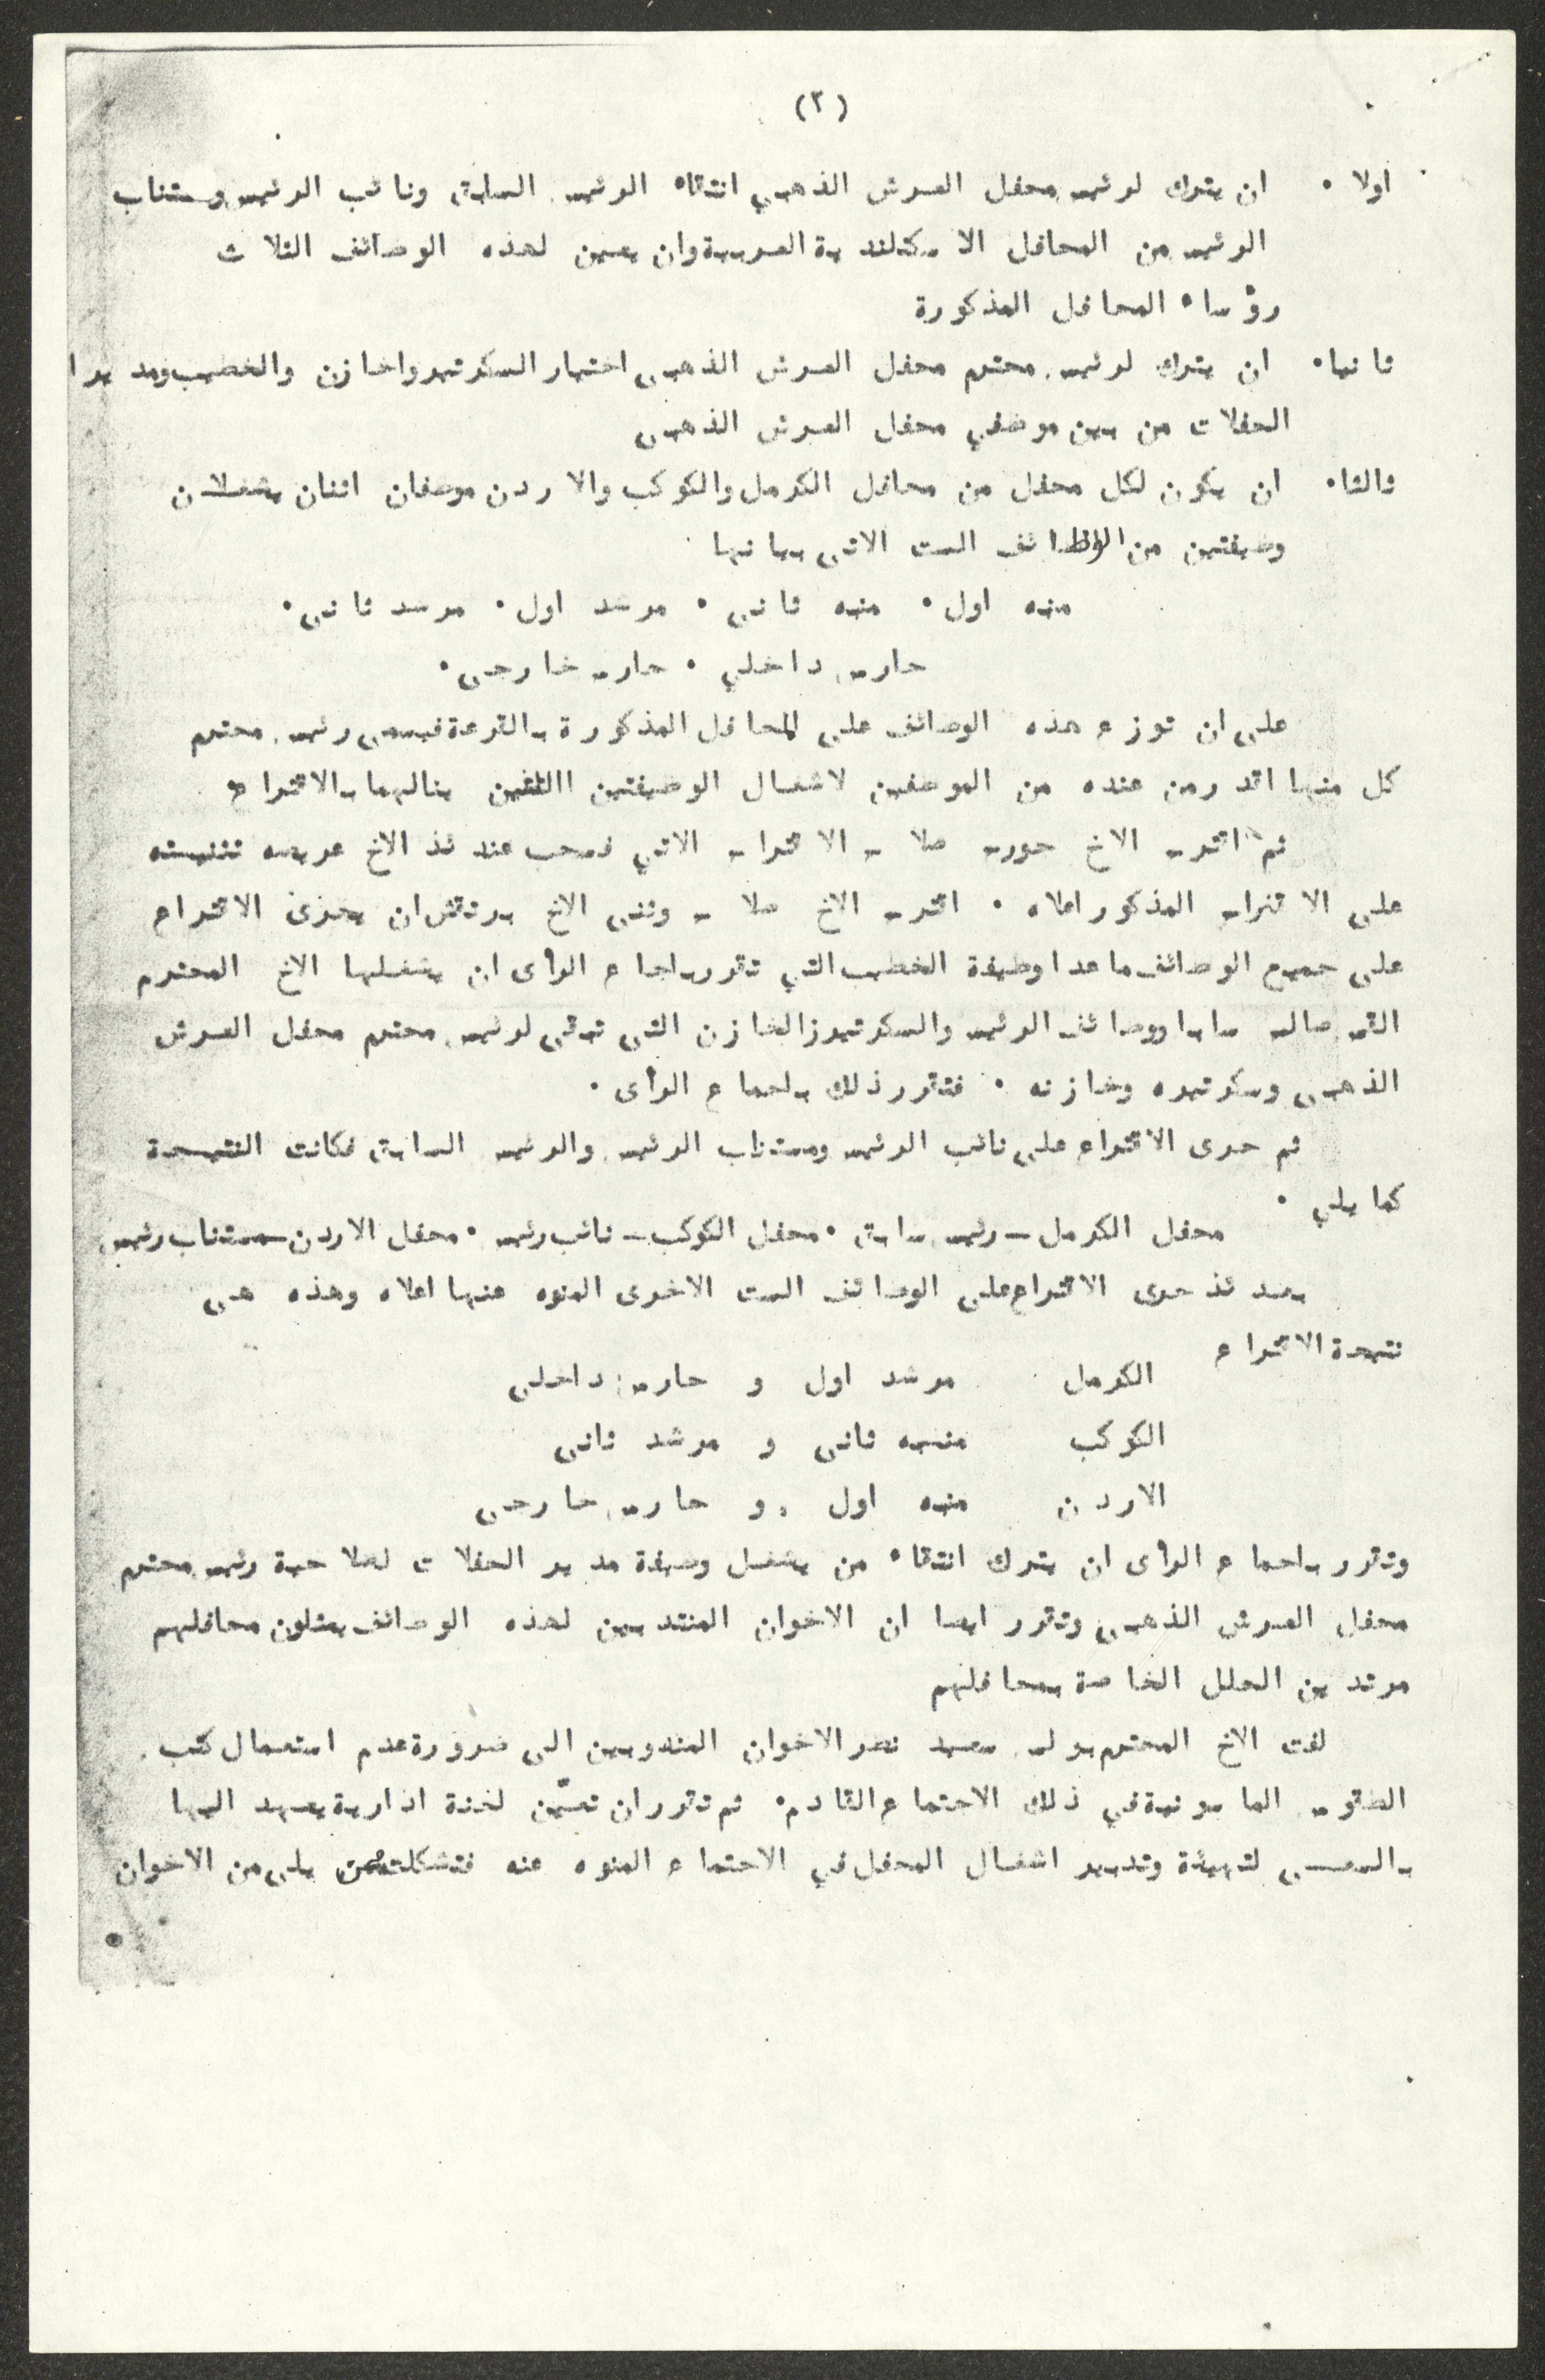 (٢)
اولا • ان يترك لرئيس محفل العرش الذهبي انتقاء الرئيس السابق ونائب الرئيس ومستناب
الرئيس من المحافل الاسكتلندية العربية وان يعين لهذه الوظائف الثلاث
رؤساء المحافل المذكورة
ثانيا• ان يترك لرئيس محترم محفل العرش الذهبى اختيار السكرتير واخازن والخطيب ومديرا
الحفلات من بين موظفي محفل العرش الذهبى
ثالثا• ان يكون لكل محفل من محافل الكرمل والكوكب والاردن موظفان اثنان يشغلان
وظيفتين من الوظائف الست الاتى بيانها
منبه اول • منبه ثانى • مرشد اول • مرشد ثانى •
حارس داخلي • حارس خارجى •
على ان توزع هذه الوظائف على المحافل المذكورة بالقرعة فيسمى رئيس محترم
كل منها اقدر من عنده من الموظفين لاشغال الوظيفتين اللتين ينالهما بالاقتراع
ثم اقترح الاخ جورج صلاح الاقتراح الاتي فسحب عندئذ الاخ عريضه تثنيته
على الاقتراح المذكور اعلاه • اقترح الاخ صلاح وثنى الاخ برتقش ان يجرى الاقتراع
على جميع الوظائف ما عدا وظيفة الخطيب التي تقرر باجماع الرأى ان يشغلها الاخ المحترم
القس صالح سابا ووظائف الرئيس والسكرتير والخازن التى تبقى لرئيس محترم محفل العرش
الذهبى وسكرتيره وخازنه • فتقرر ذلك باجماع الرأى •
ثم جرى الاقتراع على نائب الرئيس ومستناب الرئيس والرئيس السابق فكانت النتيجة
كما يلي •
محفل الكرمل – رئيس سابق • محفل الكوكب – نائب رئيس • محفل الاردن – مستناب رئيس
بعد ئذ جرى الاقتراع على الوظائف الست الاخرى المنوه عنها اعلاه وهذه هى
نتيجة الاقتراع
الكرمل مرشد اول و حارس داخلى
الكوكب منبه ثانى و مرشد ثانى
الاردن منبه اول و حارس خارجى
وتقرر باجماع الرأى ان يترك انتقاء من يشغل وظيفة مدير الحفلات لصلاحية رئيس محترم
محفل العرش الذهبى وتقرر ايضا ان الاخوان المنتدبين لهذه الوظائف يمثلون محافلهم
مرتدين الحلل الخاصة بمحافلهم
لفت الاخ المحترم بولس سعيد نظر الاخوان المندوبين الى ضرورة عدم استعمال كتب
الطقوس الماسونية في ذلك الاجتماع القادم • ثم تقرر ان تعيّن لجنة ادارية يعهد اليها
بالسعى لتهيئة وتدبير اشغال المحفل في الاجتماع المنوه عنه فتشكلت ممن يلى من الاخوان